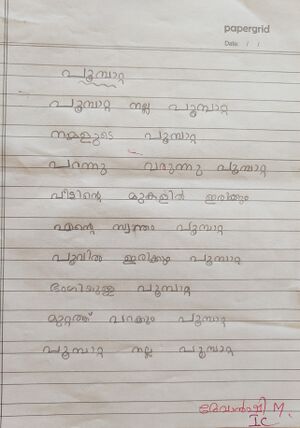 papergrid
Date: / /
പൂമ്പാറ്റ
പൂമ്പാറ്റ നല്ല പൂമ്പാറ്റ
നമ്മളുടെ പൂമ്പാറ്റ
പറന്നു വരുന്നു പൂമ്പാറ്റ
വീടിന്റെ മുകളിൽ ഇരിക്കും
എന്റെ സ്വന്തം പൂമ്പാറ്റ
പൂവിൽ ഇരിക്കും പൂമ്പാറ്റ
ഭംഗിയുള്ള പൂമ്പാറ്റ
മുറ്റത്ത് പറക്കും പൂമ്പാറ്റ
പൂമ്പാറ്റ നല്ല പൂമ്പാറ്റ
M.
I C